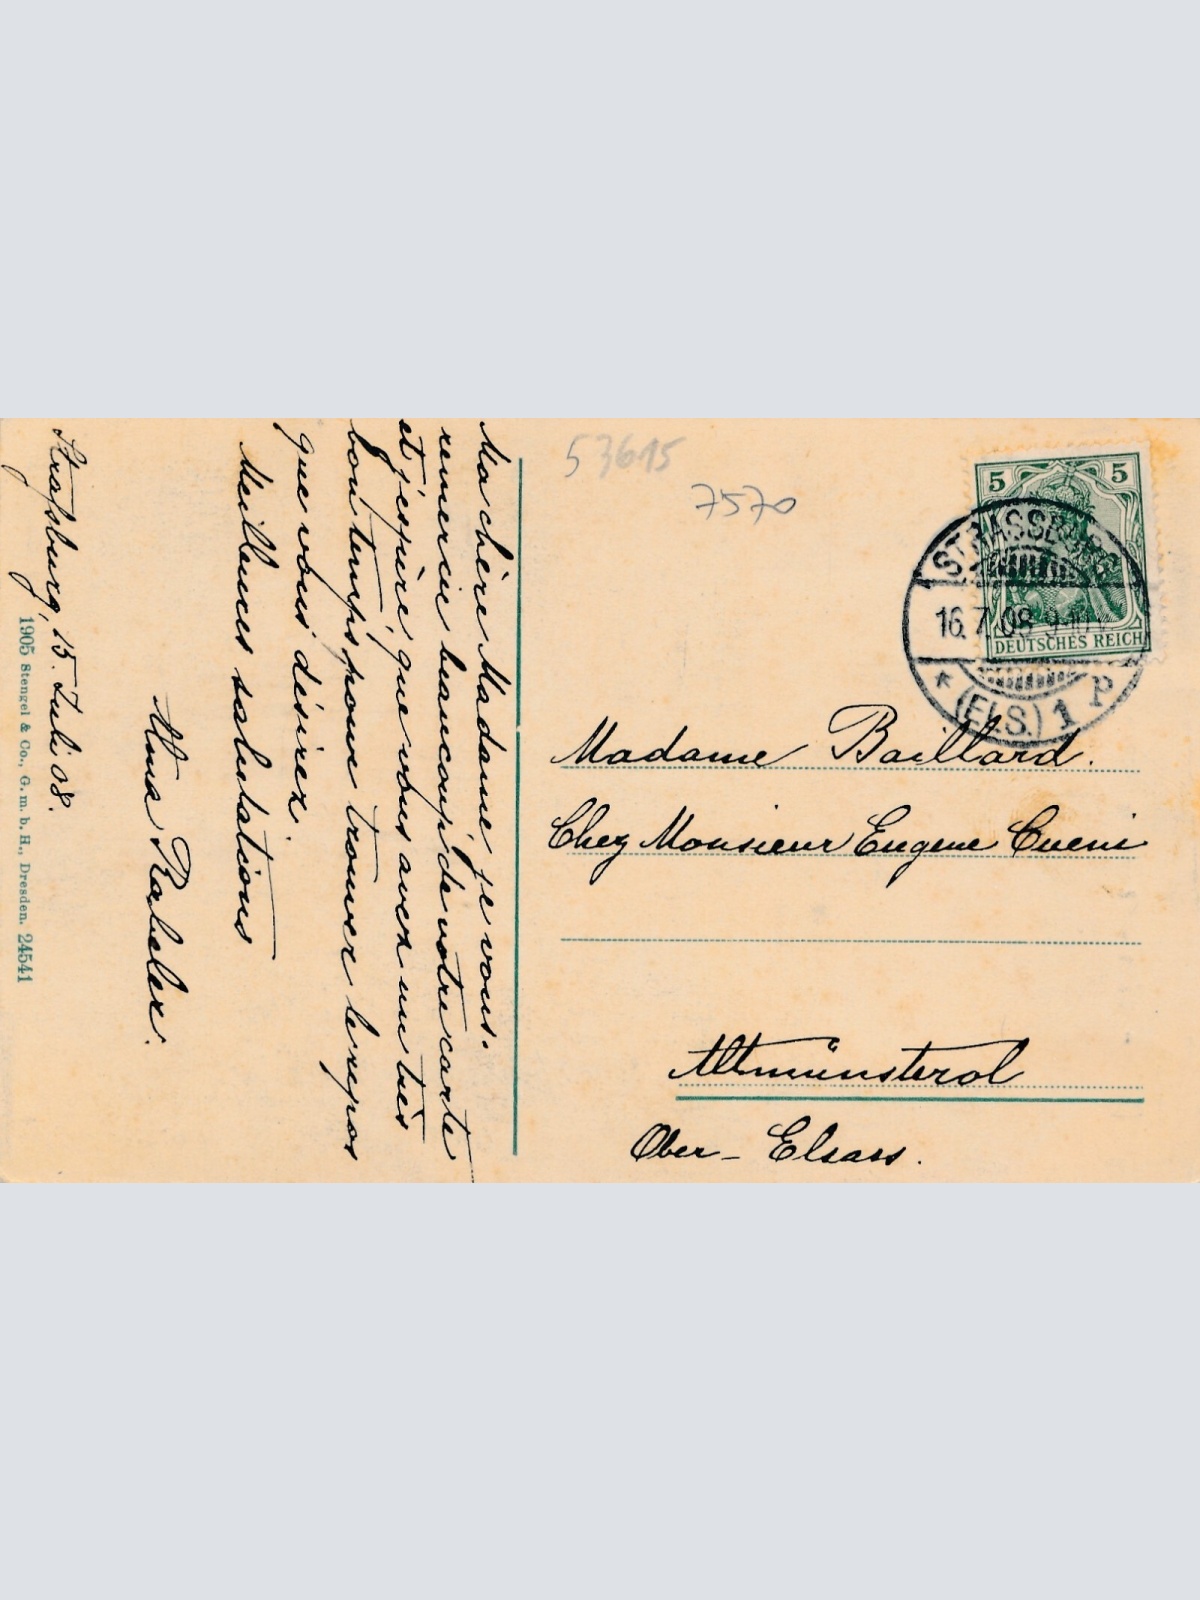 Ma chère Madame je vous
remercie beaucoup de votre carte
et j'espère que vous avez un très
bon temps pour trouver le repos
que vous désirez.
Meilleures salutations
Alma
Strassburg, 15. Juli 08.
1905 Stengel & Co., G. m. b. H., Dresden. 24541
53615
7570
5 5
DEUTSCHES REICH
STRASSBURG
16.7.08 9-10V
* (ELS.) 1 P
Madame Baillard.
Chez Monsieur Eugene Cueni
Altmünsterol
Ober-Elsass.